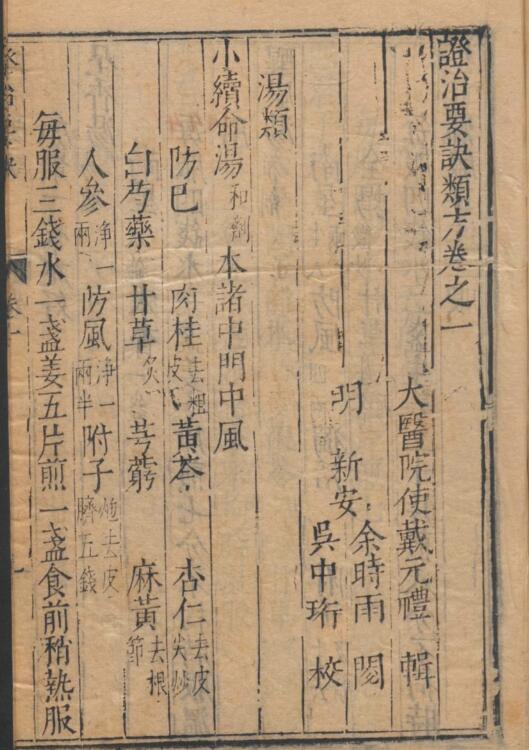 證治要訣類方卷之一
大醫院使戴元禮 輯
明 新安 余時雨 閱
吳中珩 校
湯類
小續命湯 和劑 本諸中門中風
防巳 肉桂 去粗皮 黃芩 杏仁 去皮尖炒
白芍藥 甘草 炙 芎藭 麻黃 去根節
人參 淨一兩 防風 淨一兩半 附子 炮去皮臍五錢
每服三錢水一盞姜五片煎一盞食前稍熱服